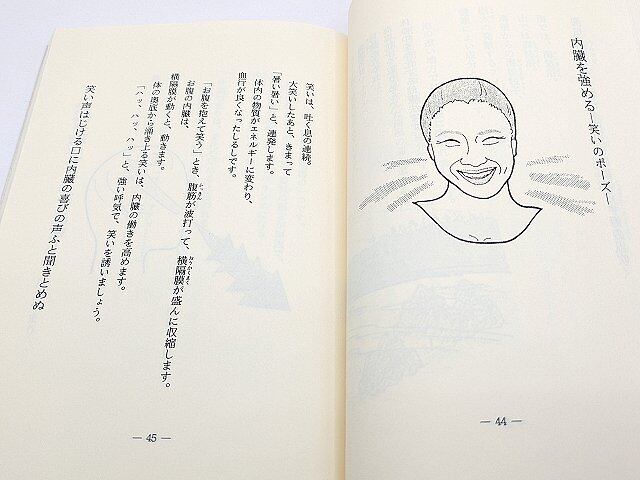 内臓を強める—笑いのポーズ—
— 44 —
笑いは、吐く息の連続。
大笑いしたあと、きまって
「暑い暑い」と、連発します。
体内の物質がエネルギーに変わり、
血行が良くなったしるしです。
「お腹を抱えて笑う」とき、腹筋が波打って、横隔膜が盛んに収縮します。
お腹の内臓は、
横隔膜が動くと、動きます。
体の奥底から湧き上る笑いは、内臓の働きを高めます。
「ハッ、ハッ、ハッ」と、強い呼気で、笑いを誘いましょう。
笑い声はじける口に内臓の喜びの声ふと聞きとめぬ
— 45 —